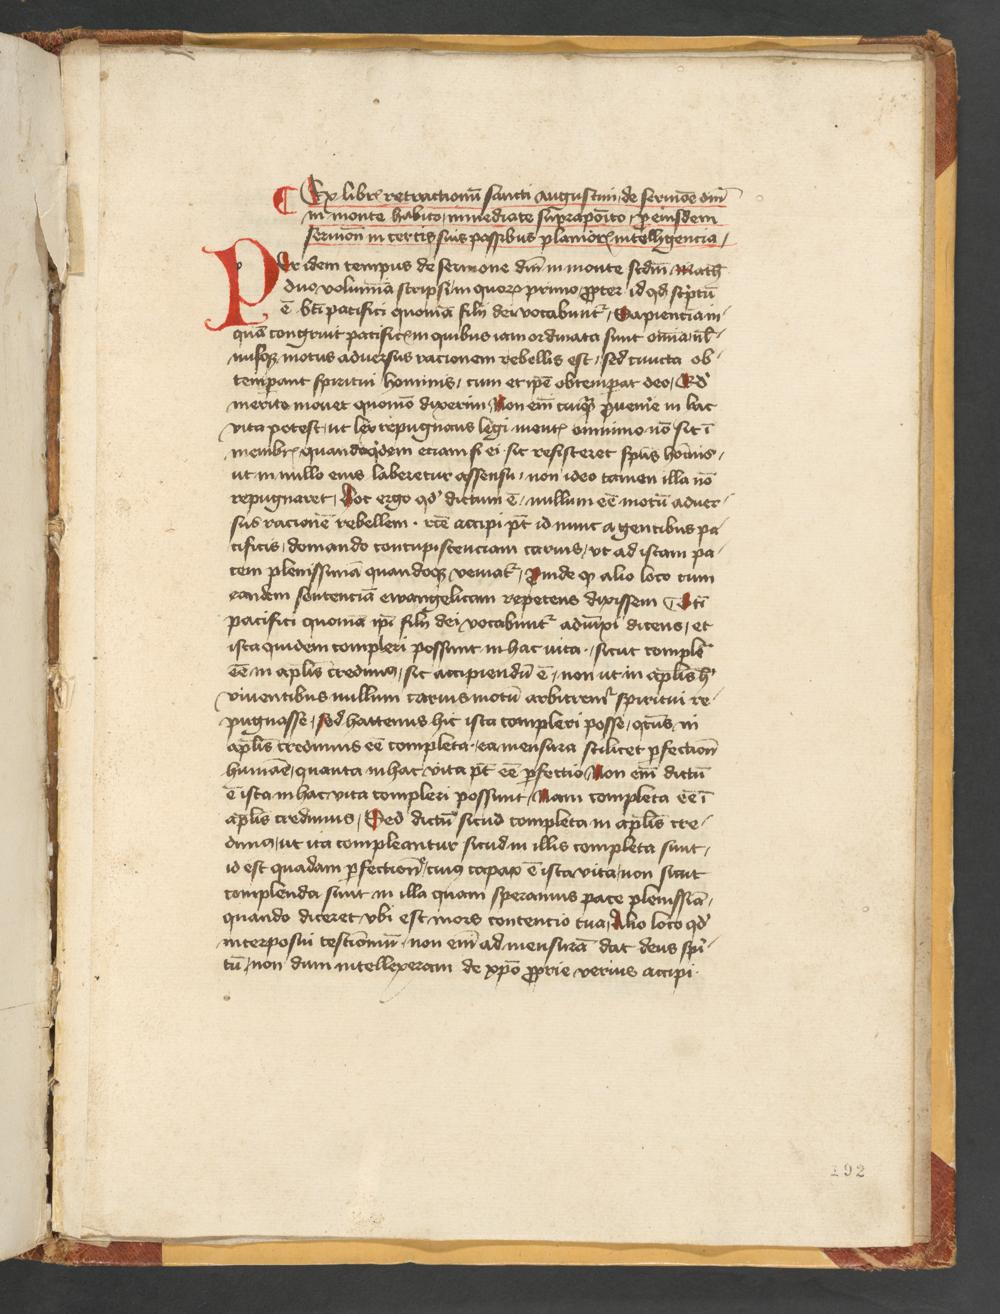 ¶ Ex librꝭ retractionū sancti augustini, de sermōe dn̄i
in monte habito, immediate sup̄raposito, ꝓ eiusdem
sermon̄ in certis suis passibus planiorꝭ intelligencia,
Per idem tempus de sermone dn̄i in monte scd̄m Math̄
duo volumīa scripsi, in quorꝝ primo, ꝓpter id qd̄ scͥptū
ē bt̄i pacifici quoniā filij dei vocabunt᷑, Sapiencia in⸗
quā congruit pacificꝭ in quibus iam ordinata sunt om̄ia, nl̄⸗
lusqꝫ motus adversus racionem rebellis est, sed cuncta ob⸗
temperant spiritui hominis, cum et ip̄e obtemperat deo, Qd̄
merito movet quomō dixerim, Non em̄ cuiqͣ ꝓvenīre in hac
vita potest, ut lex repugnans legi mentꝭ omnimo nō sit ī
membrꝭ quandoqͥdem eciam si ei sic resisteret sp̄us hoīnis,
ut in nullo eius laberetur assensu, non ideo tamen illa nō
repugnaret, Hoc ergo qd̄ dictum ē, nullum eē motū adver⸗
sus racionē rebellem, rc̄e accipi pt̄ id nunc agentibus pa⸗
cificis, domando concupiscenciam carnis, ut ad istam pa⸗
cem plenissimā quandoqꝫ veniat᷑, Proinde qꝫ alio loco cum
eandem sentenciā ewangelicam repetens dixissem Bt̄i
pacifici quoniā ip̄i filij dei vocabunt᷑ adiūxi dicens, et
ista quidem compleri possunt in hac vita, sicut complē
eē in apl̄is credimꝰ, sic accipiendū ē, non ut in apl̄is hͥ
viventibus nullum carnis motū arbitrem᷑ spiritui re⸗
pugnasse, sed hactenus hic ista compleri posse, qͣtenꝰ in
apl̄is credimus eē completa, ea mensura scilicet ꝑfection̄
humāe, quanta in hac vita pt̄ eē ꝑfectio, Non em̄ dictū
ē ista in hac vita compleri possunt, Nam completa eē ī
apl̄is credimus, Sed dictū sicud completa in apl̄is cre⸗
dimꝰ, ut ita compleantur sicud in illis completa sunt,
id est quadam ꝑfection̄e, cuiꝰ capax ē ista vita, non sicut
complenda sunt in illa quam speramus pace plenissīa,
quando diceret᷑ ubi est mors contencio tua, Alio loco qd̄
interposui testīoniū, non em̄ ad mensurā dat deus spi⸗
tū, non dum intellexeram de xp̄o ꝓprie verius accipi
192